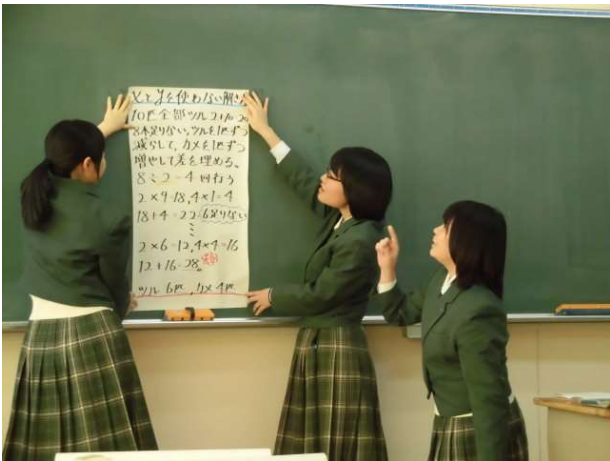 xとyを使わない解き方
10匹全部ツル 2×10=20
8本足りない。ツルを1匹ずつ
減らして、カメを1匹ずつ
増やして差を埋める。
8÷2=4 回行う
2×9=18, 4×1=4
18+4=22 6足りない
⋮
2×6=12, 4×4=16
12+16=28。
ツル6匹、カメ4匹